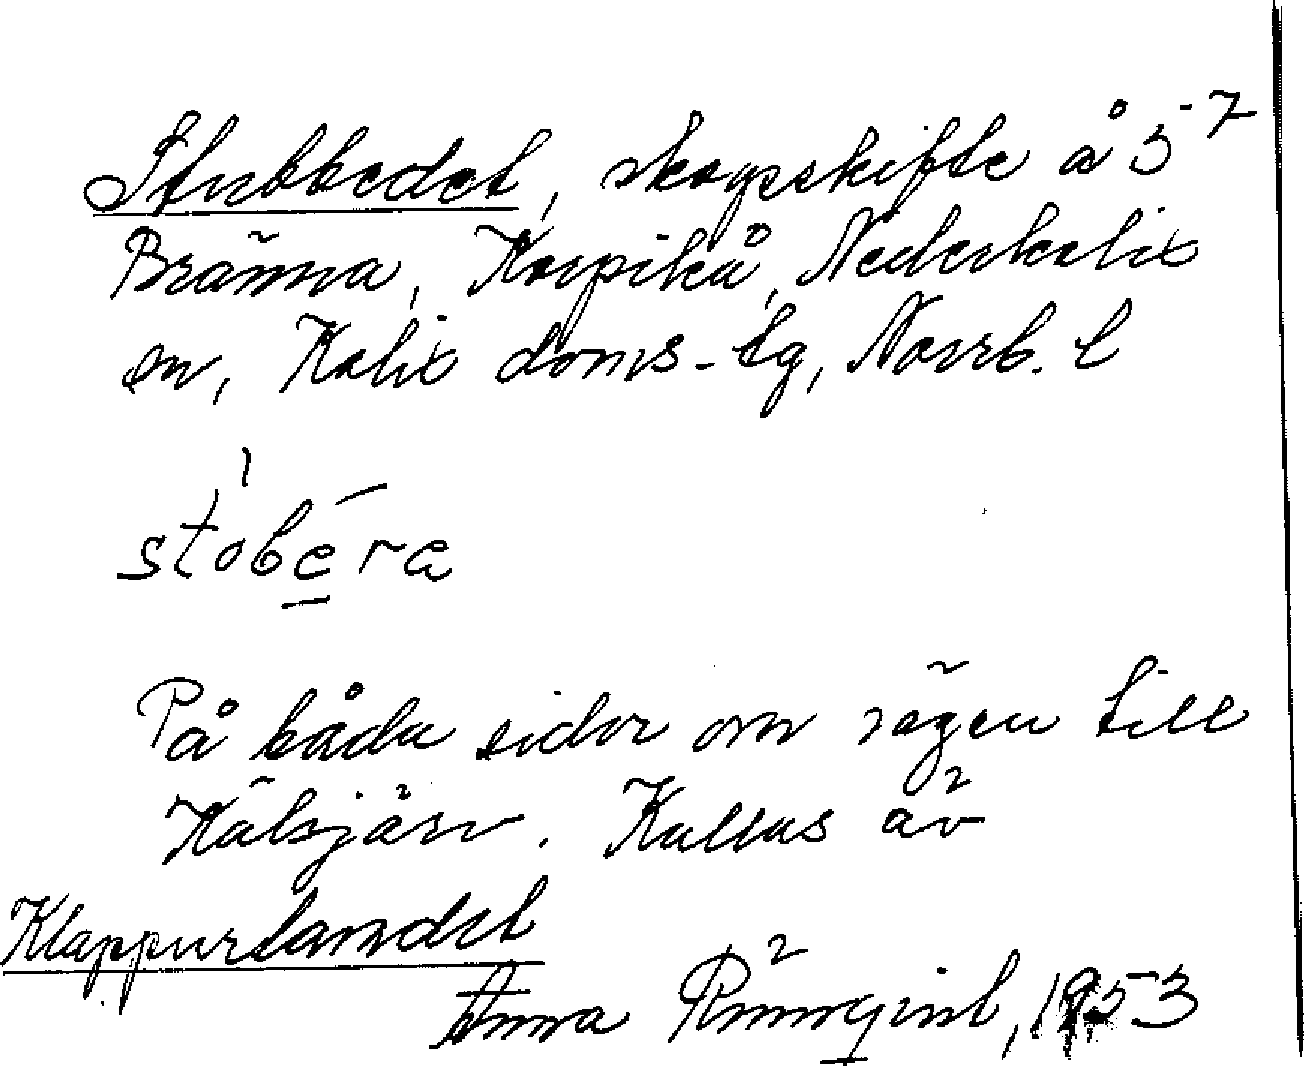 Stubbedet, skogsskifte å 5-7
Bränna, Korpikå, Nederkalix
sn, Kalix doms-lg, Norrb. l
stobera
På båda sidor om vägen till
Hälsjärv. Kallas äv
Klappurlandet
Anna Rönnqvist, 1953